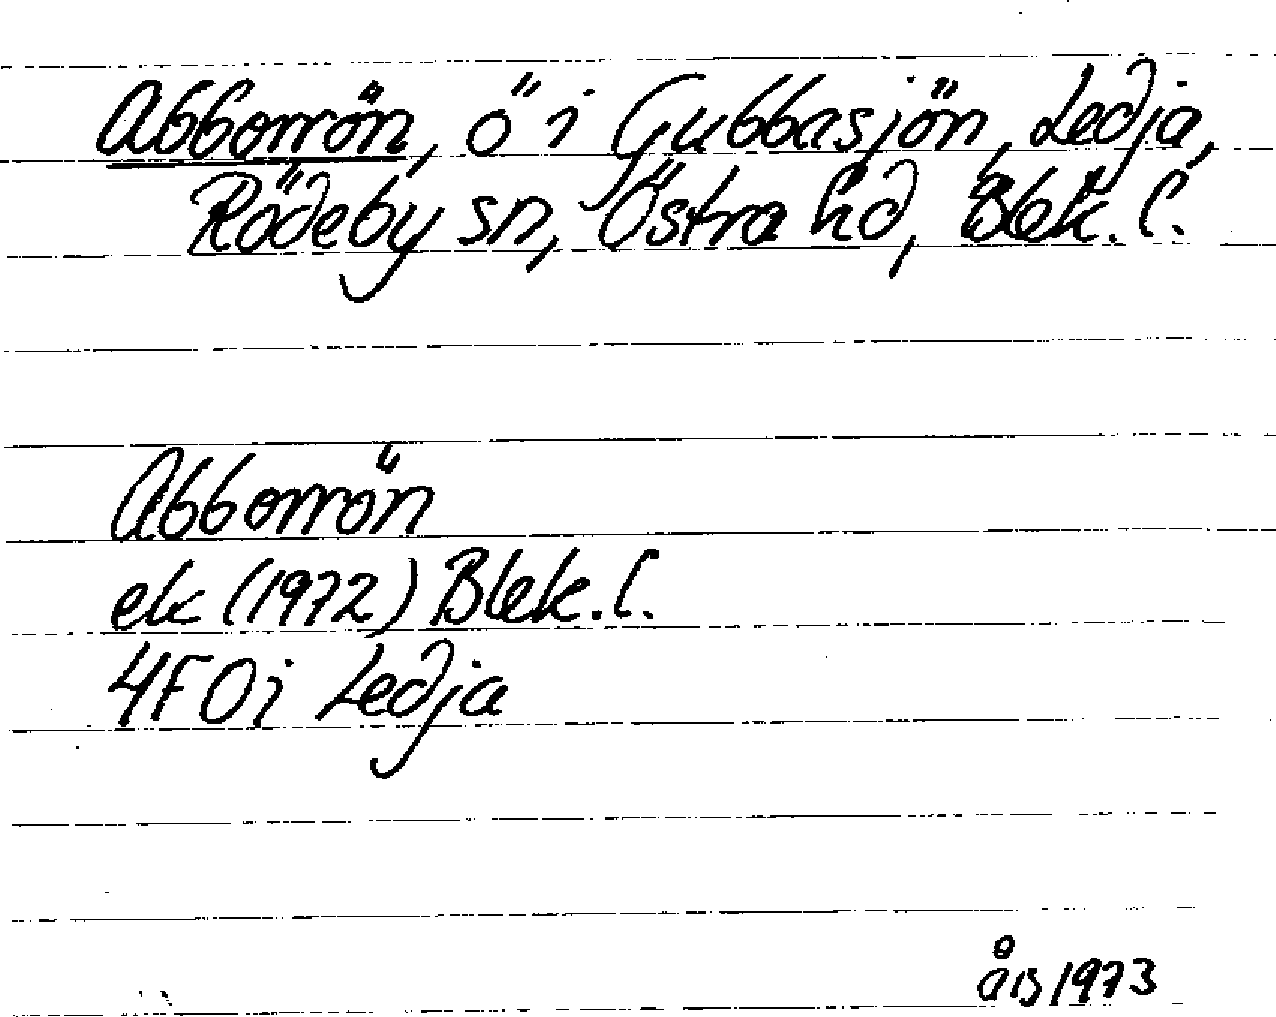 Abborrön, ö i Gubbasjön, Ledja,
Rödeby sn, Östra hd, Blek. l.
Abborrön
ek (1972) Blek. l.
4F0i Ledja
1973